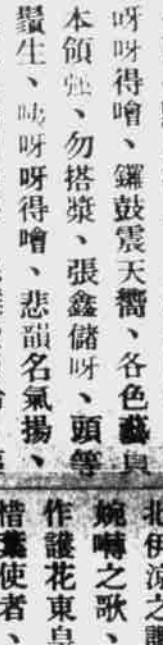 呀呀得噲、鑼鼓震天嚮、各色藝員
本領強、勿搭漿、張鑫儲呀、頭等
鬚生、咦呀呀得噲、悲韻名氣揚、
北伊涼之
婉囀之歌、
作護花東皇
惜葉使者、